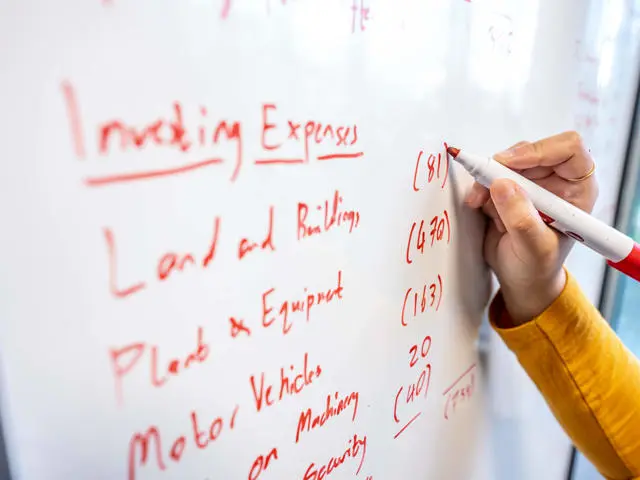 Investing Expenses
Land and Buildings (81)
Plant & Equipment (470)
Motor Vehicles (163)
on Machinery 20
Security (40)
(734)